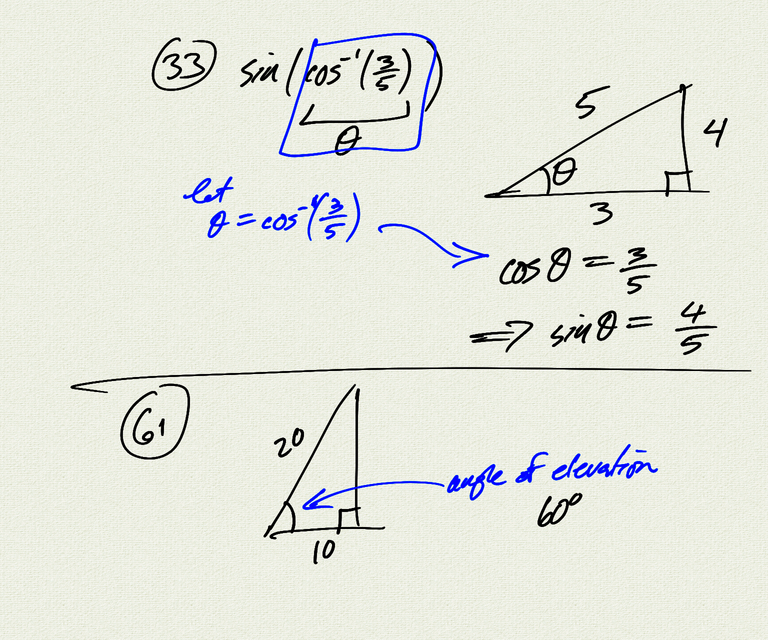 33 sin(cos⁻¹(3/5))
θ
5
4
θ
3
let
θ = cos⁻¹(3/5)
cosθ = 3/5
⇒ sinθ = 4/5
61
20
angle of elevation
60°
10